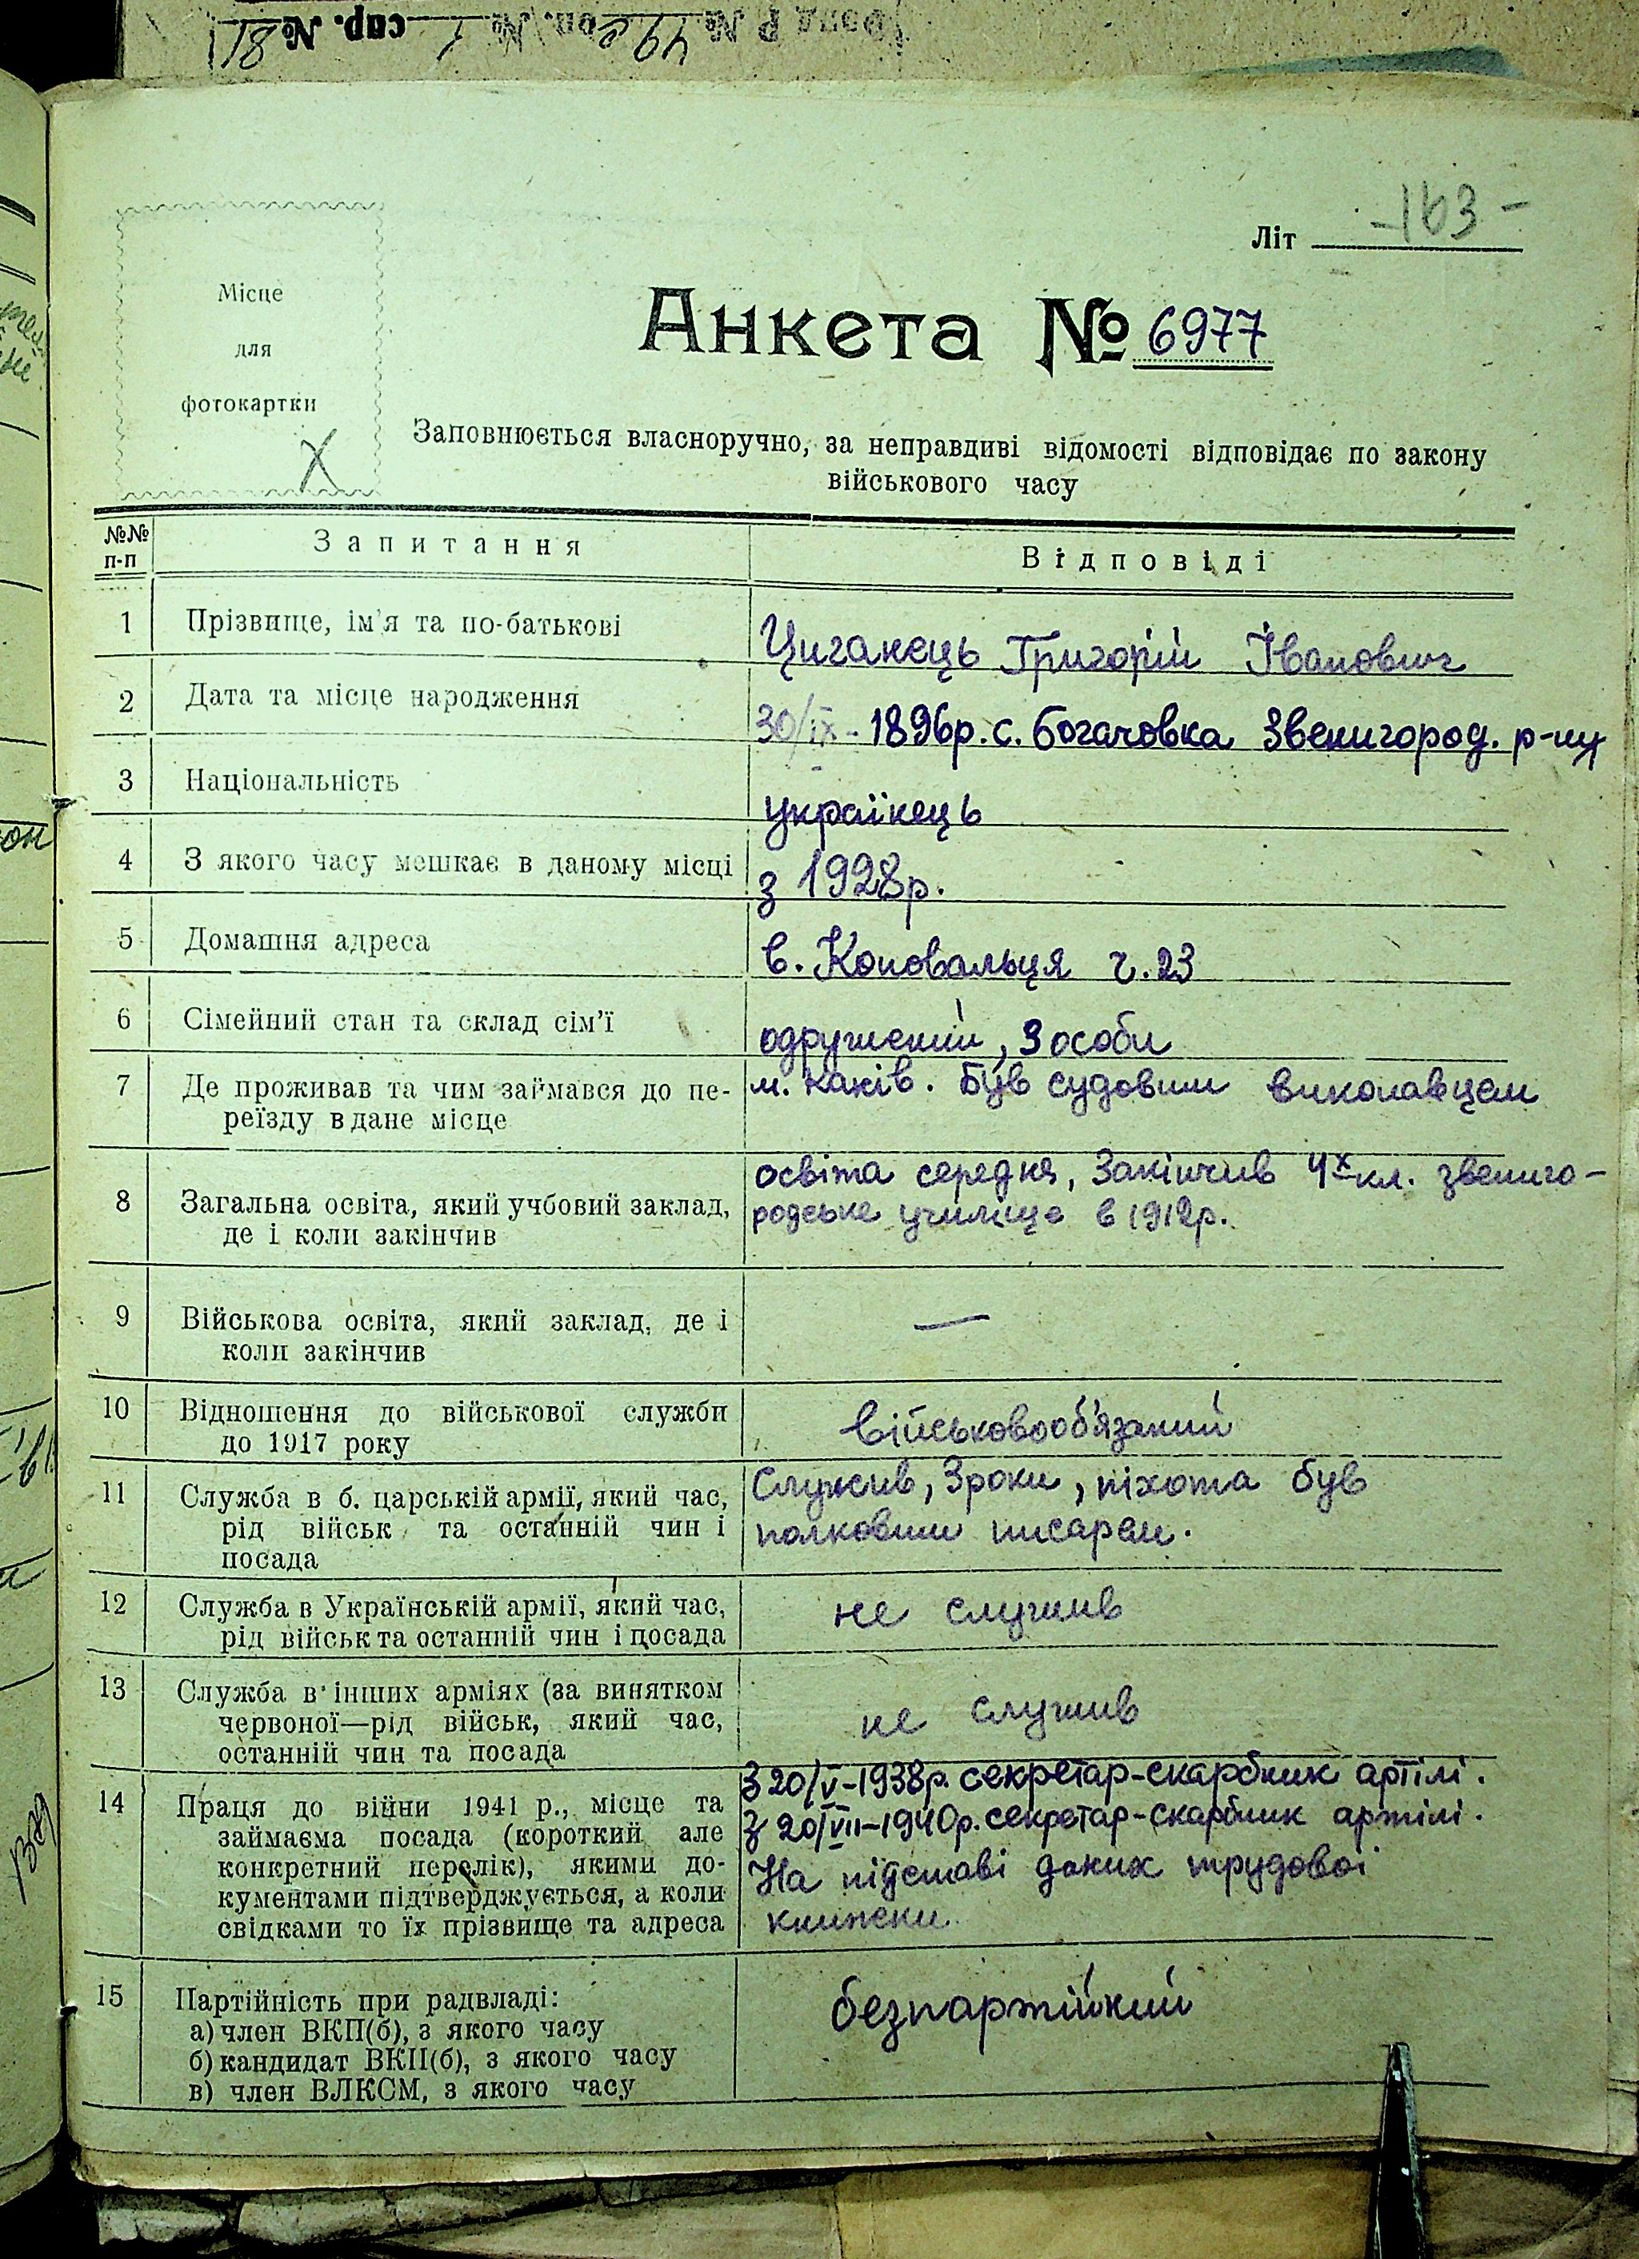 Фонд Р № 49 оп. № 1 спр. № 81
Літ -163-
Місце
для
фотокартки
Х
Анкета № 6977
Заповнюється власноручно, за неправдиві відомості відповідає по закону
військового часу
№№ п-п Запитання Відповіді
1 Прізвище, ім'я та по-батькові Циганець Григорій Іванович
2 Дата та місце народження 30/ІХ-1896р. с. Богачовка Звенигород. р-ну
3 Національність українець
4 З якого часу мешкає в даному місці з 1928р.
5 Домашня адреса в. Коновальця ч. 23
6 Сімейний стан та склад сім'ї одружений, 3 особи
7 Де проживав та чим займався до пе- м. Канів. Був судовим виконавцем
реїзду в дане місце
8 Загальна освіта, який учбовий заклад, освіта середня, Закінчив 4х кл. звениго-
де і коли закінчив родське училище в 1912р.
9 Військова освіта, який заклад, де і —
коли закінчив
10 Відношення до військової служби військовооб'язаний
до 1917 року
11 Служба в б. царській армії, який час, Служив, 3 роки, піхота був
рід військ та останній чин і полковим писарем.
посада
12 Служба в Українській армії, який час, не служив
рід військ та останній чин і посада
13 Служба в інших арміях (за винятком не служив
червоної—рід військ, який час,
останній чин та посада
14 Праця до війни 1941 р., місце та З 20/V-1938р. секретар-скарбник артілі.
займаєма посада (короткий але З 20/VII-1940р. секретар-скарбник артілі.
конкретний перелік), якими до- На підставі даних трудової
кументами підтверджується, а коли книжки
свідками то їх прізвище та адреса
15 Партійність при радвладі: безпартійний
а) член ВКП(б), з якого часу
б) кандидат ВКП(б), з якого часу
в) член ВЛКСМ, з якого часу